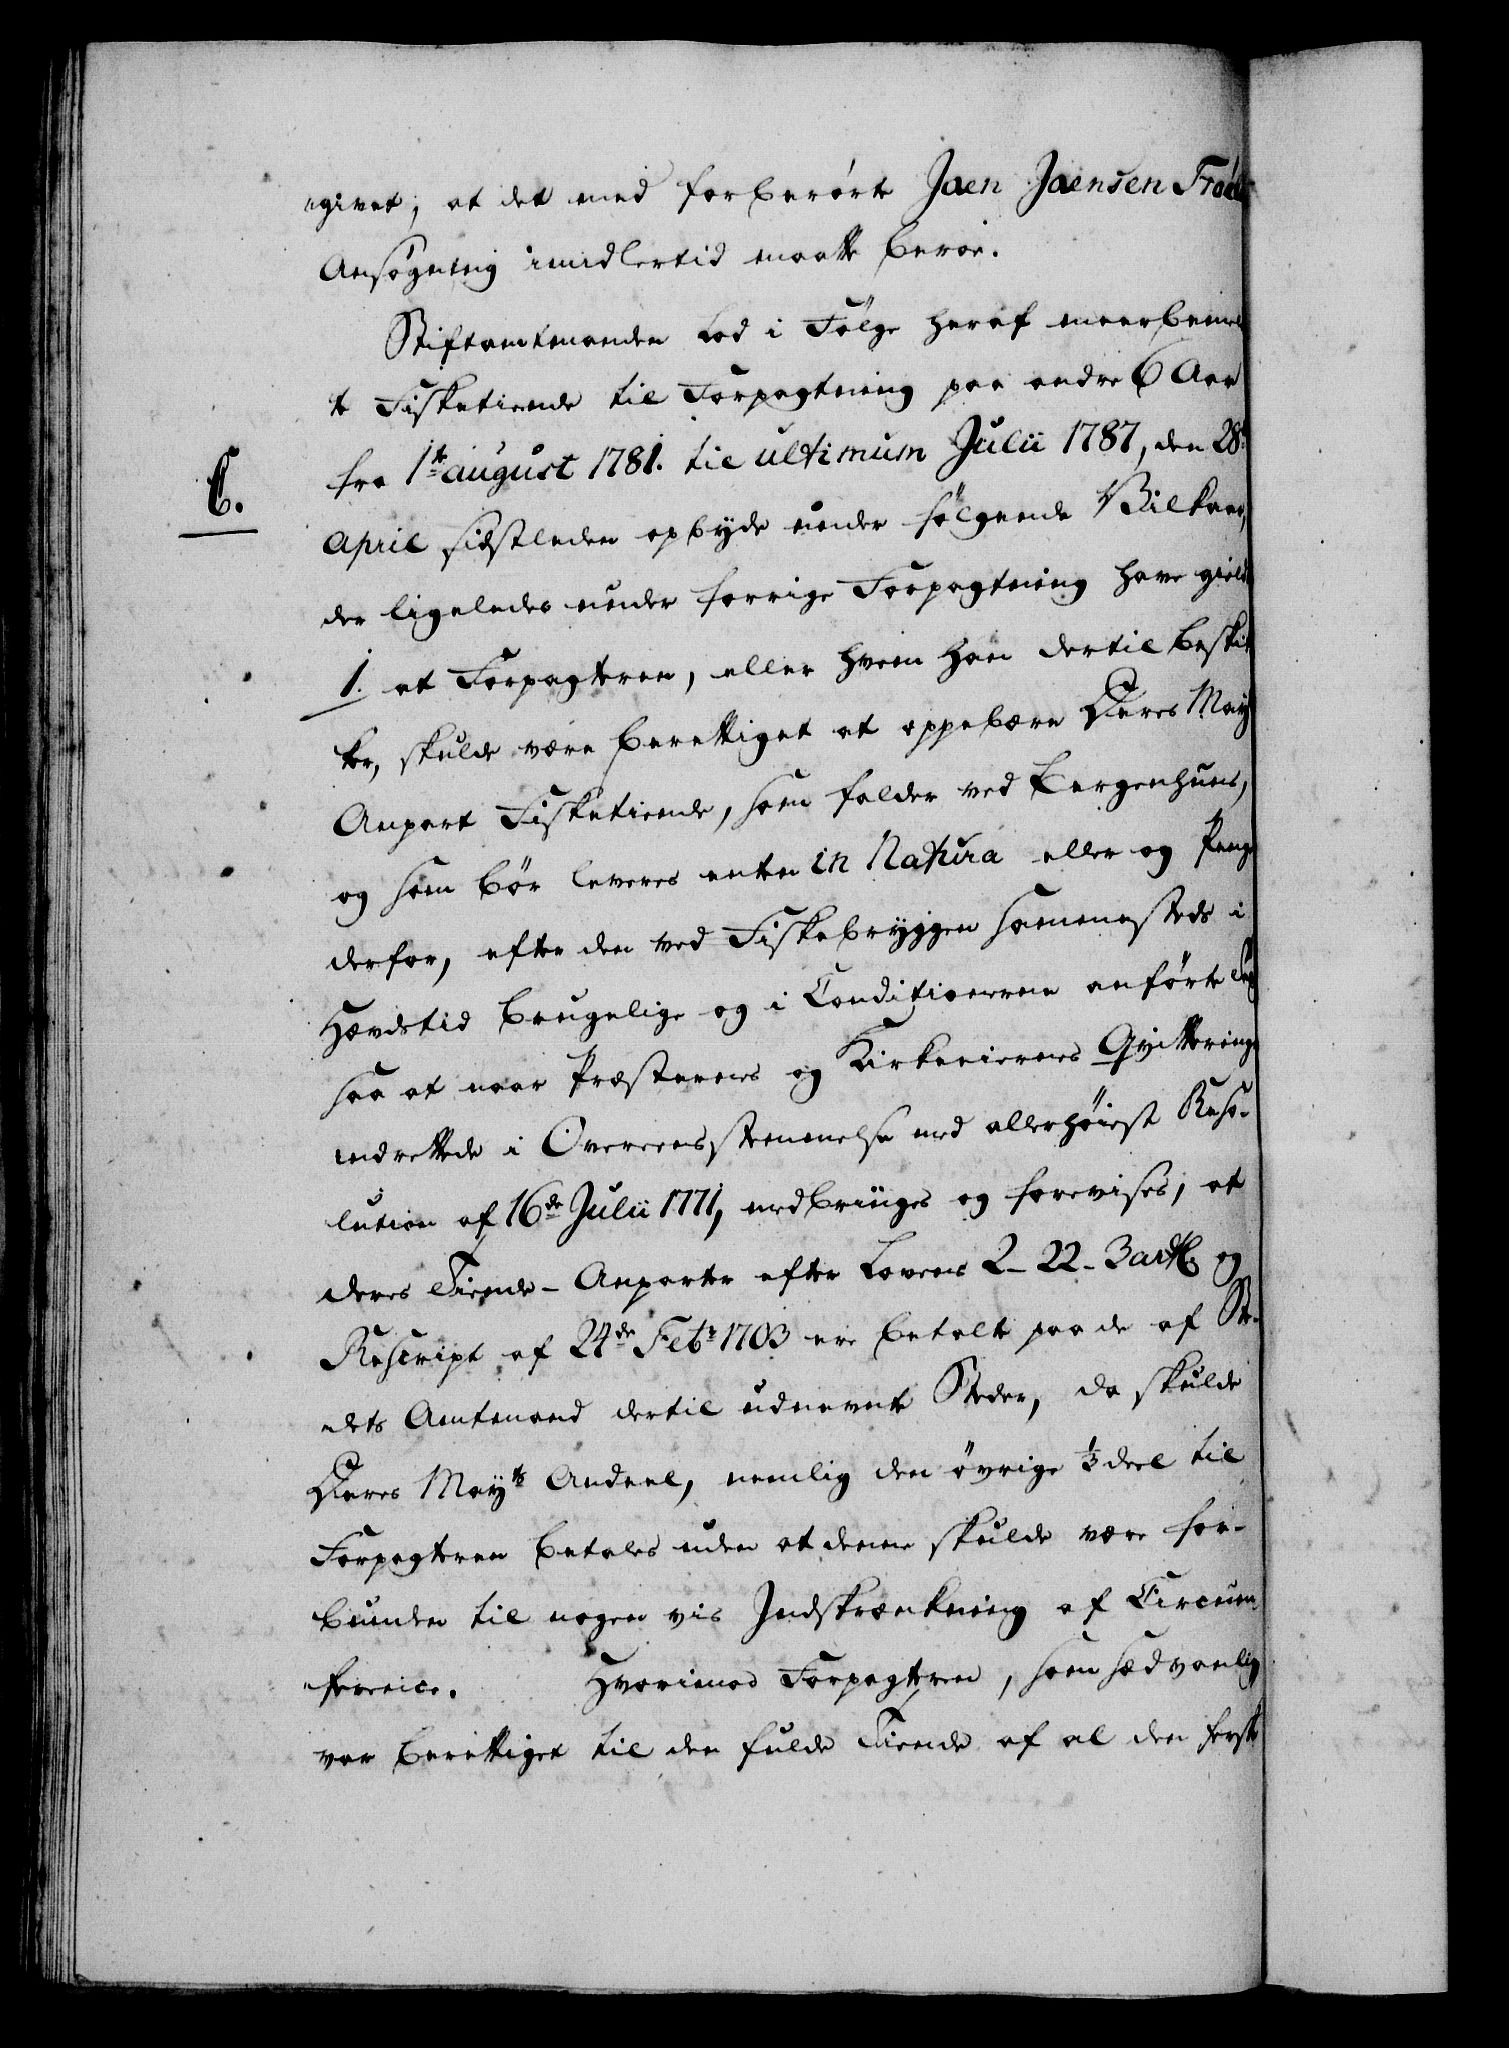 givet, at det med forberørte Jaen Jaensen
Ansøgning imidlertid maatte beroe.
Stiftamtmanden lod i Følge heraf meerbemel
te Fisketiende til Forpagtning paa andre 6 Aar
fra 1te august 1781. til ultimum Julii 1787, den 28de
C.
April sidstleden opbyde under følgende Vilkaar,
der ligeledes under forrige Forpagtning have gield
1. at Forpagteren, eller hvem han dertil beskik
ker, skulde være berettiget at oppebære Deres May
Anpart Fisketiende, som falder ved Bergenhuus,
og som bør leveres enten in Natura eller og Penge
derfor, efter den ved Fiskebryggen sammesteds i
Hævdstid brugelige og i Conditionerne anførte
saa at naar Præsternes og Kirkeeiernes Qvitteringe
indrettede i Overeensstemmelse med allerhøiest Reso-
lution af 16de Julii 1771, medbringes og forevises, at
deres Tiende-Anparter efter Lovens 2-22-3 artl. og
Rescript af 24de Febr 1703 ere betalte paa de af Ste-
dets Amtmand dertil udnævnte Steder, da skulde
Deres Mayts Andeel, nemlig den øvrige 1/3 deel til
Forpagteren betales uden at denne skulde være for-
bunden til nogen vis Indskrænkning af Circum-
ference. Hvorimod Forpagteren, som sædvanlig
var berettiget til den fulde Tiende af al den fersk